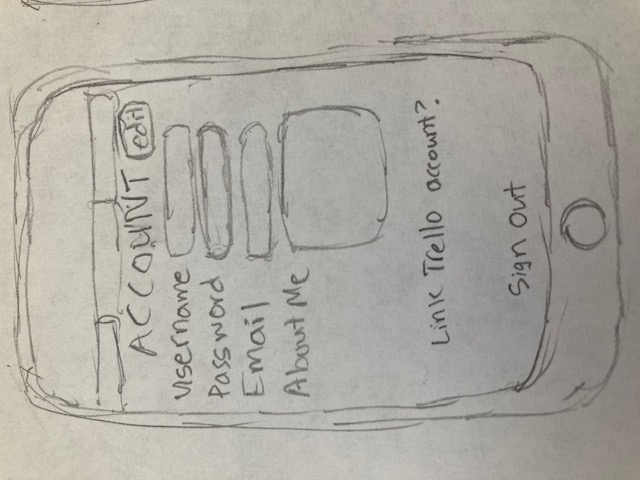 ACCOUNT edit
Username
Password
Email
About Me
Link Trello account?
Sign Out